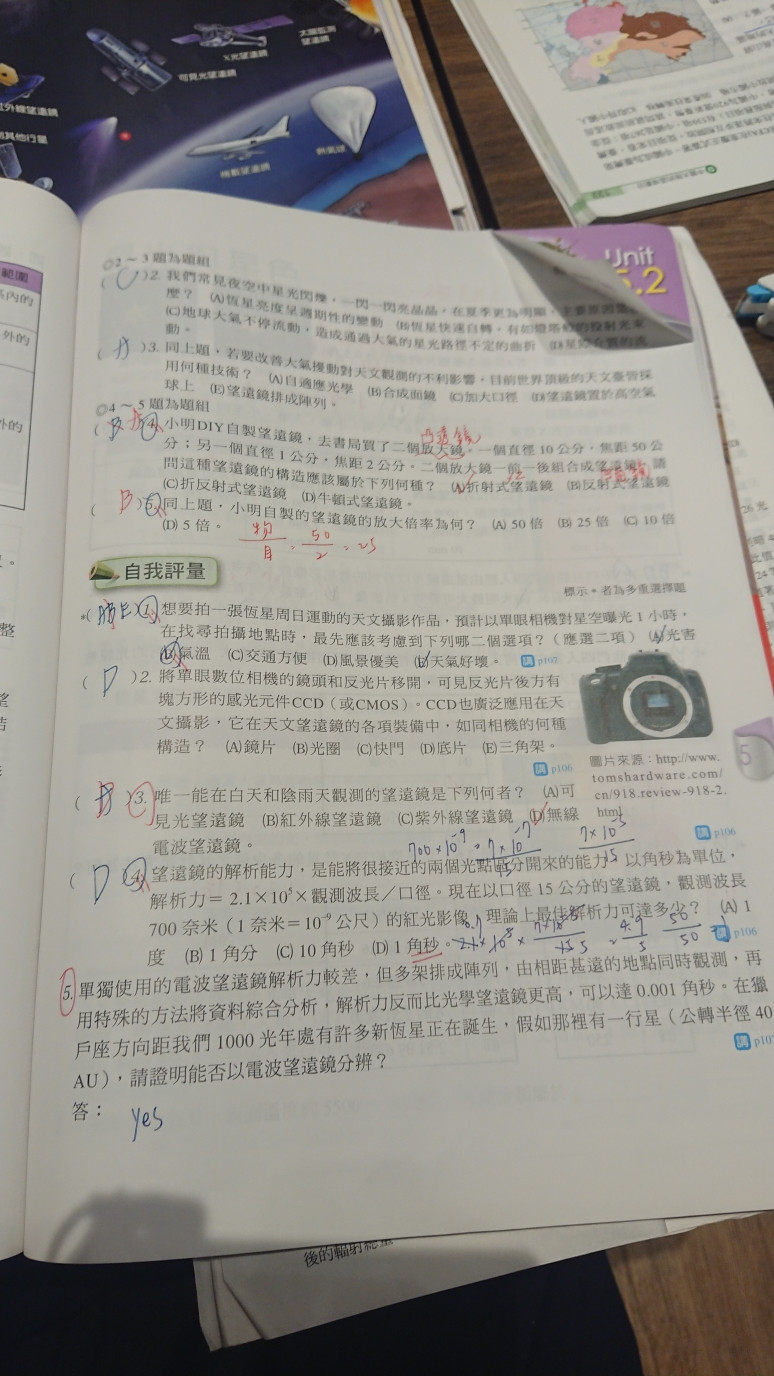 太陽監測
望遠鏡
X光望遠鏡
可見光望遠鏡
紅外線望遠鏡
機載望遠鏡
熱氣球
Unit
5.2
範圍
○2～3題為題組
( C )2. 我們常見夜空中星光閃爍，一閃一閃亮晶晶，在夏季更為明顯。主要原因是
麼？ (A)恆星亮度呈週期性的變動 (B)恆星快速自轉，有如燈塔般的投射光束
(C)地球大氣不停流動，造成通過大氣的星光路徑不定的曲折 (D)星際介質的流
動。
( A )3. 同上題，若要改善大氣擾動對天文觀測的不利影響，目前世界頂級的天文臺皆採
用何種技術？ (A)自適應光學 (B)合成面鏡 (C)加大口徑 (D)望遠鏡置於高空氣
球上 (E)望遠鏡排成陣列。
○4～5題為題組
( B A )4. 小明DIY自製望遠鏡，去書局買了二個放大鏡。一個直徑10公分，焦距50公
分；另一個直徑1公分，焦距2公分。二個放大鏡一前一後組合成望遠鏡，請
問這種望遠鏡的構造應該屬於下列何種？ (A)折射式望遠鏡 (B)反射式望遠鏡
(C)折反射式望遠鏡 (D)牛頓式望遠鏡。
( B )5. 同上題，小明自製的望遠鏡的放大倍率為何？ (A) 50倍 (B) 25倍 (C) 10倍
(D) 5倍。
物/目 = 50/2 = 25
自我評量
標示＊者為多重選擇題
*( E )1. 想要拍一張恆星周日運動的天文攝影作品，預計以單眼相機對星空曝光1小時。
在找尋拍攝地點時，最先應該考慮到下列哪二個選項？（應選二項） (A)光害
(B)氣溫 (C)交通方便 (D)風景優美 (E)天氣好壞。 講 p107
( D )2. 將單眼數位相機的鏡頭和反光片移開，可見反光片後方有
塊方形的感光元件CCD（或CMOS）。CCD也廣泛應用在天
文攝影，它在天文望遠鏡的各項裝備中，如同相機的何種
構造？ (A)鏡片 (B)光圈 (C)快門 (D)底片 (E)三角架。
講 p106
圖片來源：http://www.
tomshardware.com/
cn/918.review-918-2.
html
5
( )3. 唯一能在白天和陰雨天觀測的望遠鏡是下列何者？ (A)可
見光望遠鏡 (B)紅外線望遠鏡 (C)紫外線望遠鏡 (D)無線
電波望遠鏡。
講 p106
( D )4. 望遠鏡的解析能力，是能將很接近的兩個光點區分開來的能力。以角秒為單位，
解析力＝2.1×10⁵×觀測波長／口徑。現在以口徑15公分的望遠鏡，觀測波長
700奈米（1奈米＝10⁻⁹公尺）的紅光影像，理論上最佳解析力可達多少？ (A) 1
度 (B) 1角分 (C) 10角秒 (D) 1角秒。
講 p106
5. 單獨使用的電波望遠鏡解析力較差，但多架排成陣列，由相距甚遠的地點同時觀測，再
用特殊的方法將資料綜合分析，解析力反而比光學望遠鏡更高，可以達0.001角秒。在獵
戶座方向距我們1000光年處有許多新恆星正在誕生，假如那裡有一行星（公轉半徑40
AU），請證明能否以電波望遠鏡分辨？
講 p107
答：
yes